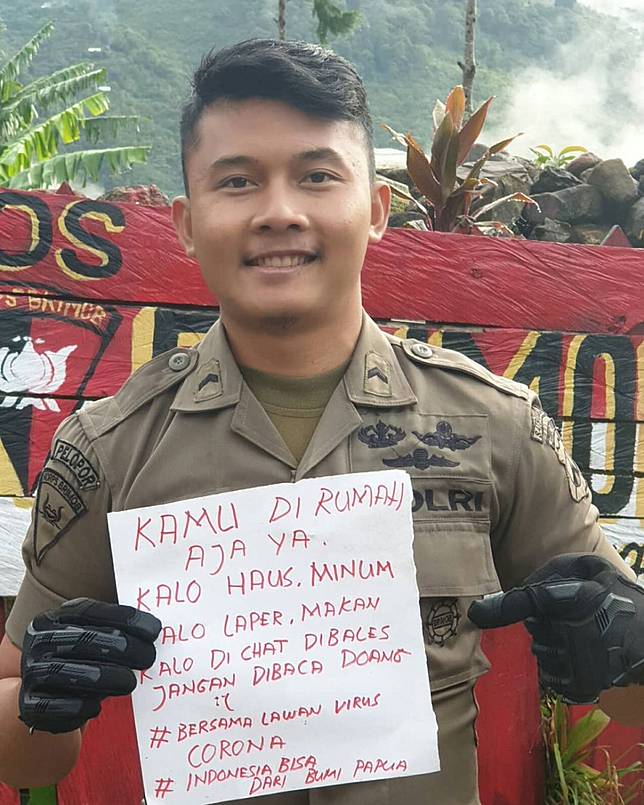 OS
S BRIMOB
PELOPOR
KORPS BRIMOB
OLRI
KAMU DI RUMAH
AJA YA.
KALO HAUS. MINUM
KALO LAPER. MAKAN
KALO DI CHAT DIBALES
JANGAN DIBACA DOANG
:'(
# BERSAMA LAWAN VIRUS
CORONA
# INDONESIA BISA
DARI BUMI PAPUA